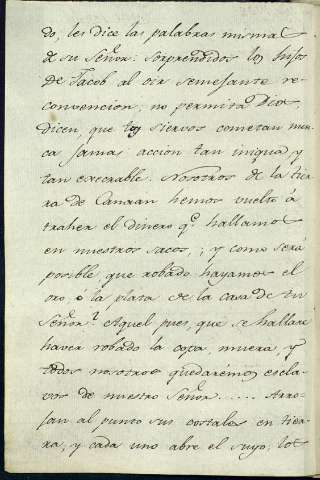 do, les dice las palabras mismas
de su Señor: sorprendidos los hijos
de Jacob al oir semejante re-
convencion; no permita Dios
dicen, que tus siervos cometan nun-
ca jamas accion tan iniqua y
tan execrable. Nosotros de la tier-
ra de Canaan hemos vuelto á
traher el dinero q.e hallamos
en nuestros sacos,; y como será
posible que robado hayamos el
oro, o la plata de la casa de tu
Señor? Aquel pues, que se hallare
haver robado la copa, muera, y
todos nosotros quedaremos escla-
vos de nuestro Señor..... Arro-
jan al punto sus costales en tier-
ra, y cada uno abre el suyo, los